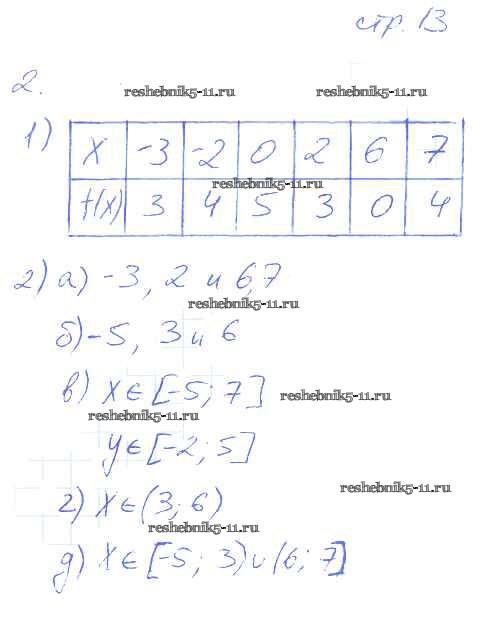 стр. 13
2.
reshebnik5-11.ru reshebnik5-11.ru
1)
x -3 -2 0 2 6 7
reshebnik5-11.ru
f(x) 3 4 5 3 0 4
2) а) -3, 2 и 6,7
reshebnik5-11.ru
б) -5, 3 и 6
в) x ∈ [-5; 7]
reshebnik5-11.ru
reshebnik5-11.ru
y ∈ [-2; 5]
reshebnik5-11.ru
г) x ∈ (3; 6)
reshebnik5-11.ru
д) x ∈ [-5; 3) ∪ (6; 7]